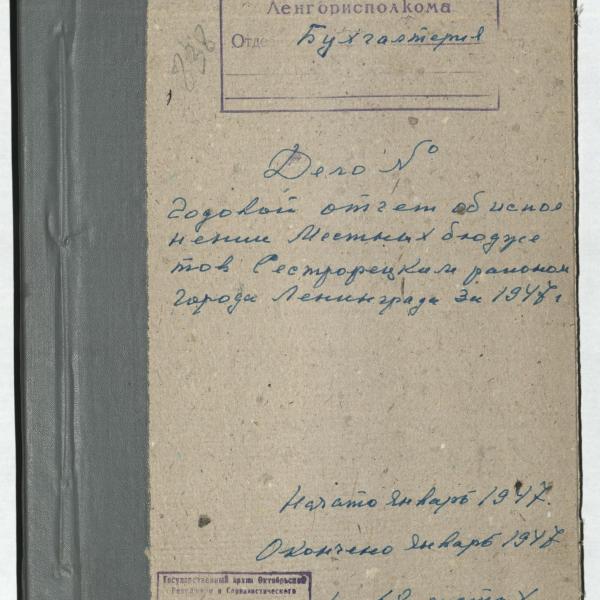 Ленгорисполкома
Отде Бухгалтерия
238
Дело №
Годовой отчет об испол
нении Местных бюдже
тов Сестрорецким районом
города Ленинграда за 1947 г
Начато январь 1947
Окончено январь 1947
Государственный архив Октябрьской
Революции и Социалистического
листах